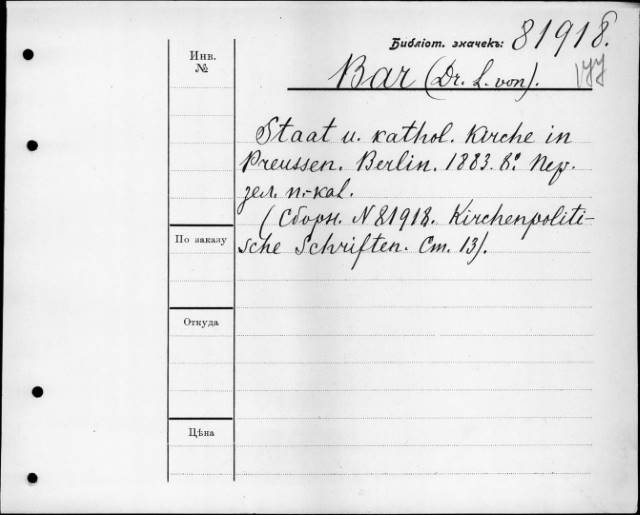 Библіот. значекъ: 81918.
Инв.
№
Bar (Dr. L. von).
Staat u. kathol. Kirche in
Preussen. Berlin. 1883. 8º Пер.
зел. п.-кал.
(Сборн. N 81918. Kirchenpoliti-
sche Schriften. Ст. 13).
По заказу
Откуда
Цѣна